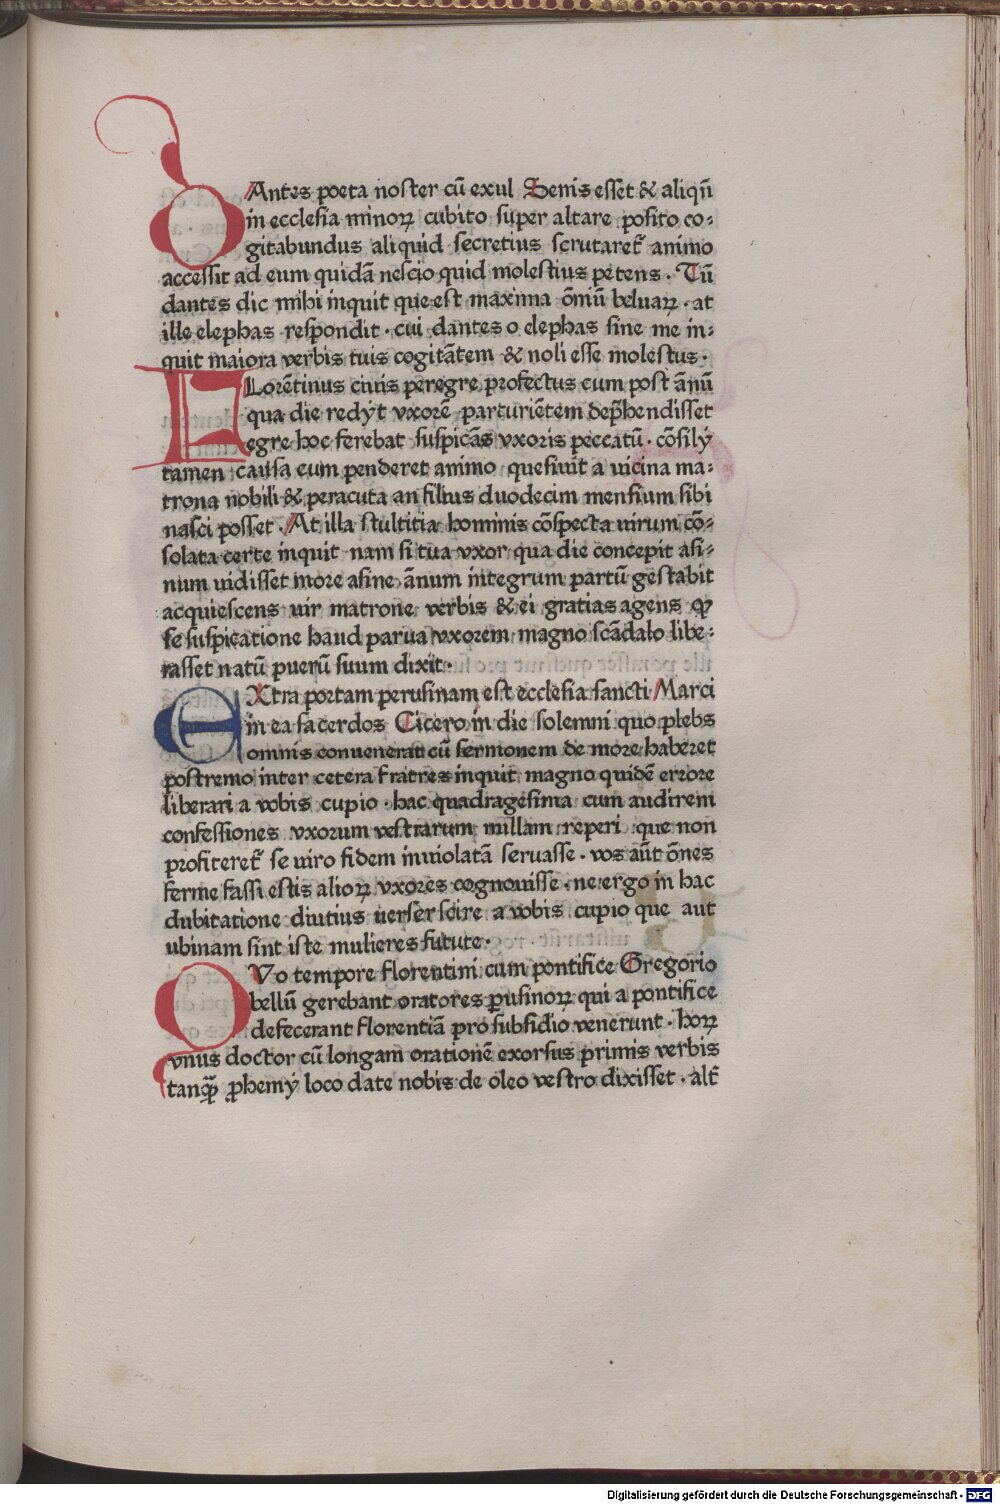 DAntes poeta noster cū exul Senis esset & aliqñ
in ecclesia minoꝝ cubito super altare posito co⸗
gitabundus aliquid secretius scrutaret᷑ animo
accessit ad eum quidā nescio quid molestius petens · Tū
dantes dic mihi inquit que est maxima ōmū beluaꝝ · at
ille elephas respondit · cui dantes o elephas sine me in⸗
quit maiora verbis tuis cogitātem & noli esse molestus ·
FLorētinus ciuis peregre profectus cum post ānū
qua die redyt vxorē parturiētem dep̄hendisset
egre hoc ferebat suspicās vxoris peccatū · cōsilÿ
tamen causa eum penderet animo quesiuit a uicina ma⸗
trona nobili & peracuta an filius duodecim mensium sibi
nasci posset · At illa stultitia hominis cōspecta uirum cō⸗
solata certe inquit nam si tua vxor qua die concepit asi⸗
num uidisset more asine ānum integrum partū gestabit
acquiescens uir matrone verbis & ei gratias agens ꝙ
se suspicatione haud parua vxorem magno scādalo libe⸗
rasset natū puerū suum dixit ·
EXtra portam perusinam est ecclesia sancti Marci
in ea sacerdos Cicero in die solemni quo plebs
omnis conuenerat cū sermonem de more haberet
postremo inter cetera fratres inquit magno quidē errore
liberari a vobis cupio · hac quadragesima cum audirem
confessiones vxorum vestrarum nullam reperi que non
profiteret᷑ se uiro fidem inuiolatā seruasse · vos aūt ōnes
ferme fassi estis alioꝝ vxores cognouisse · ne ergo in hac
dubitatione diutius uerser scire a vobis cupio que aut
ubinam sint iste mulieres futute ·
QVo tempore florentini cum pontifice Gregorio
bellū gerebant oratores ꝑusinoꝝ qui a pontifice
defecerant florentiā pro subsidio venerunt · hoꝝ
vnus doctor cū longam orationē exorsus primis verbis
tanqꝫ ꝓhemÿ loco date nobis de oleo vestro dixisset · alt᷑
Digitalisierung gefördert durch die Deutsche Forschungsgemeinschaft - DFG